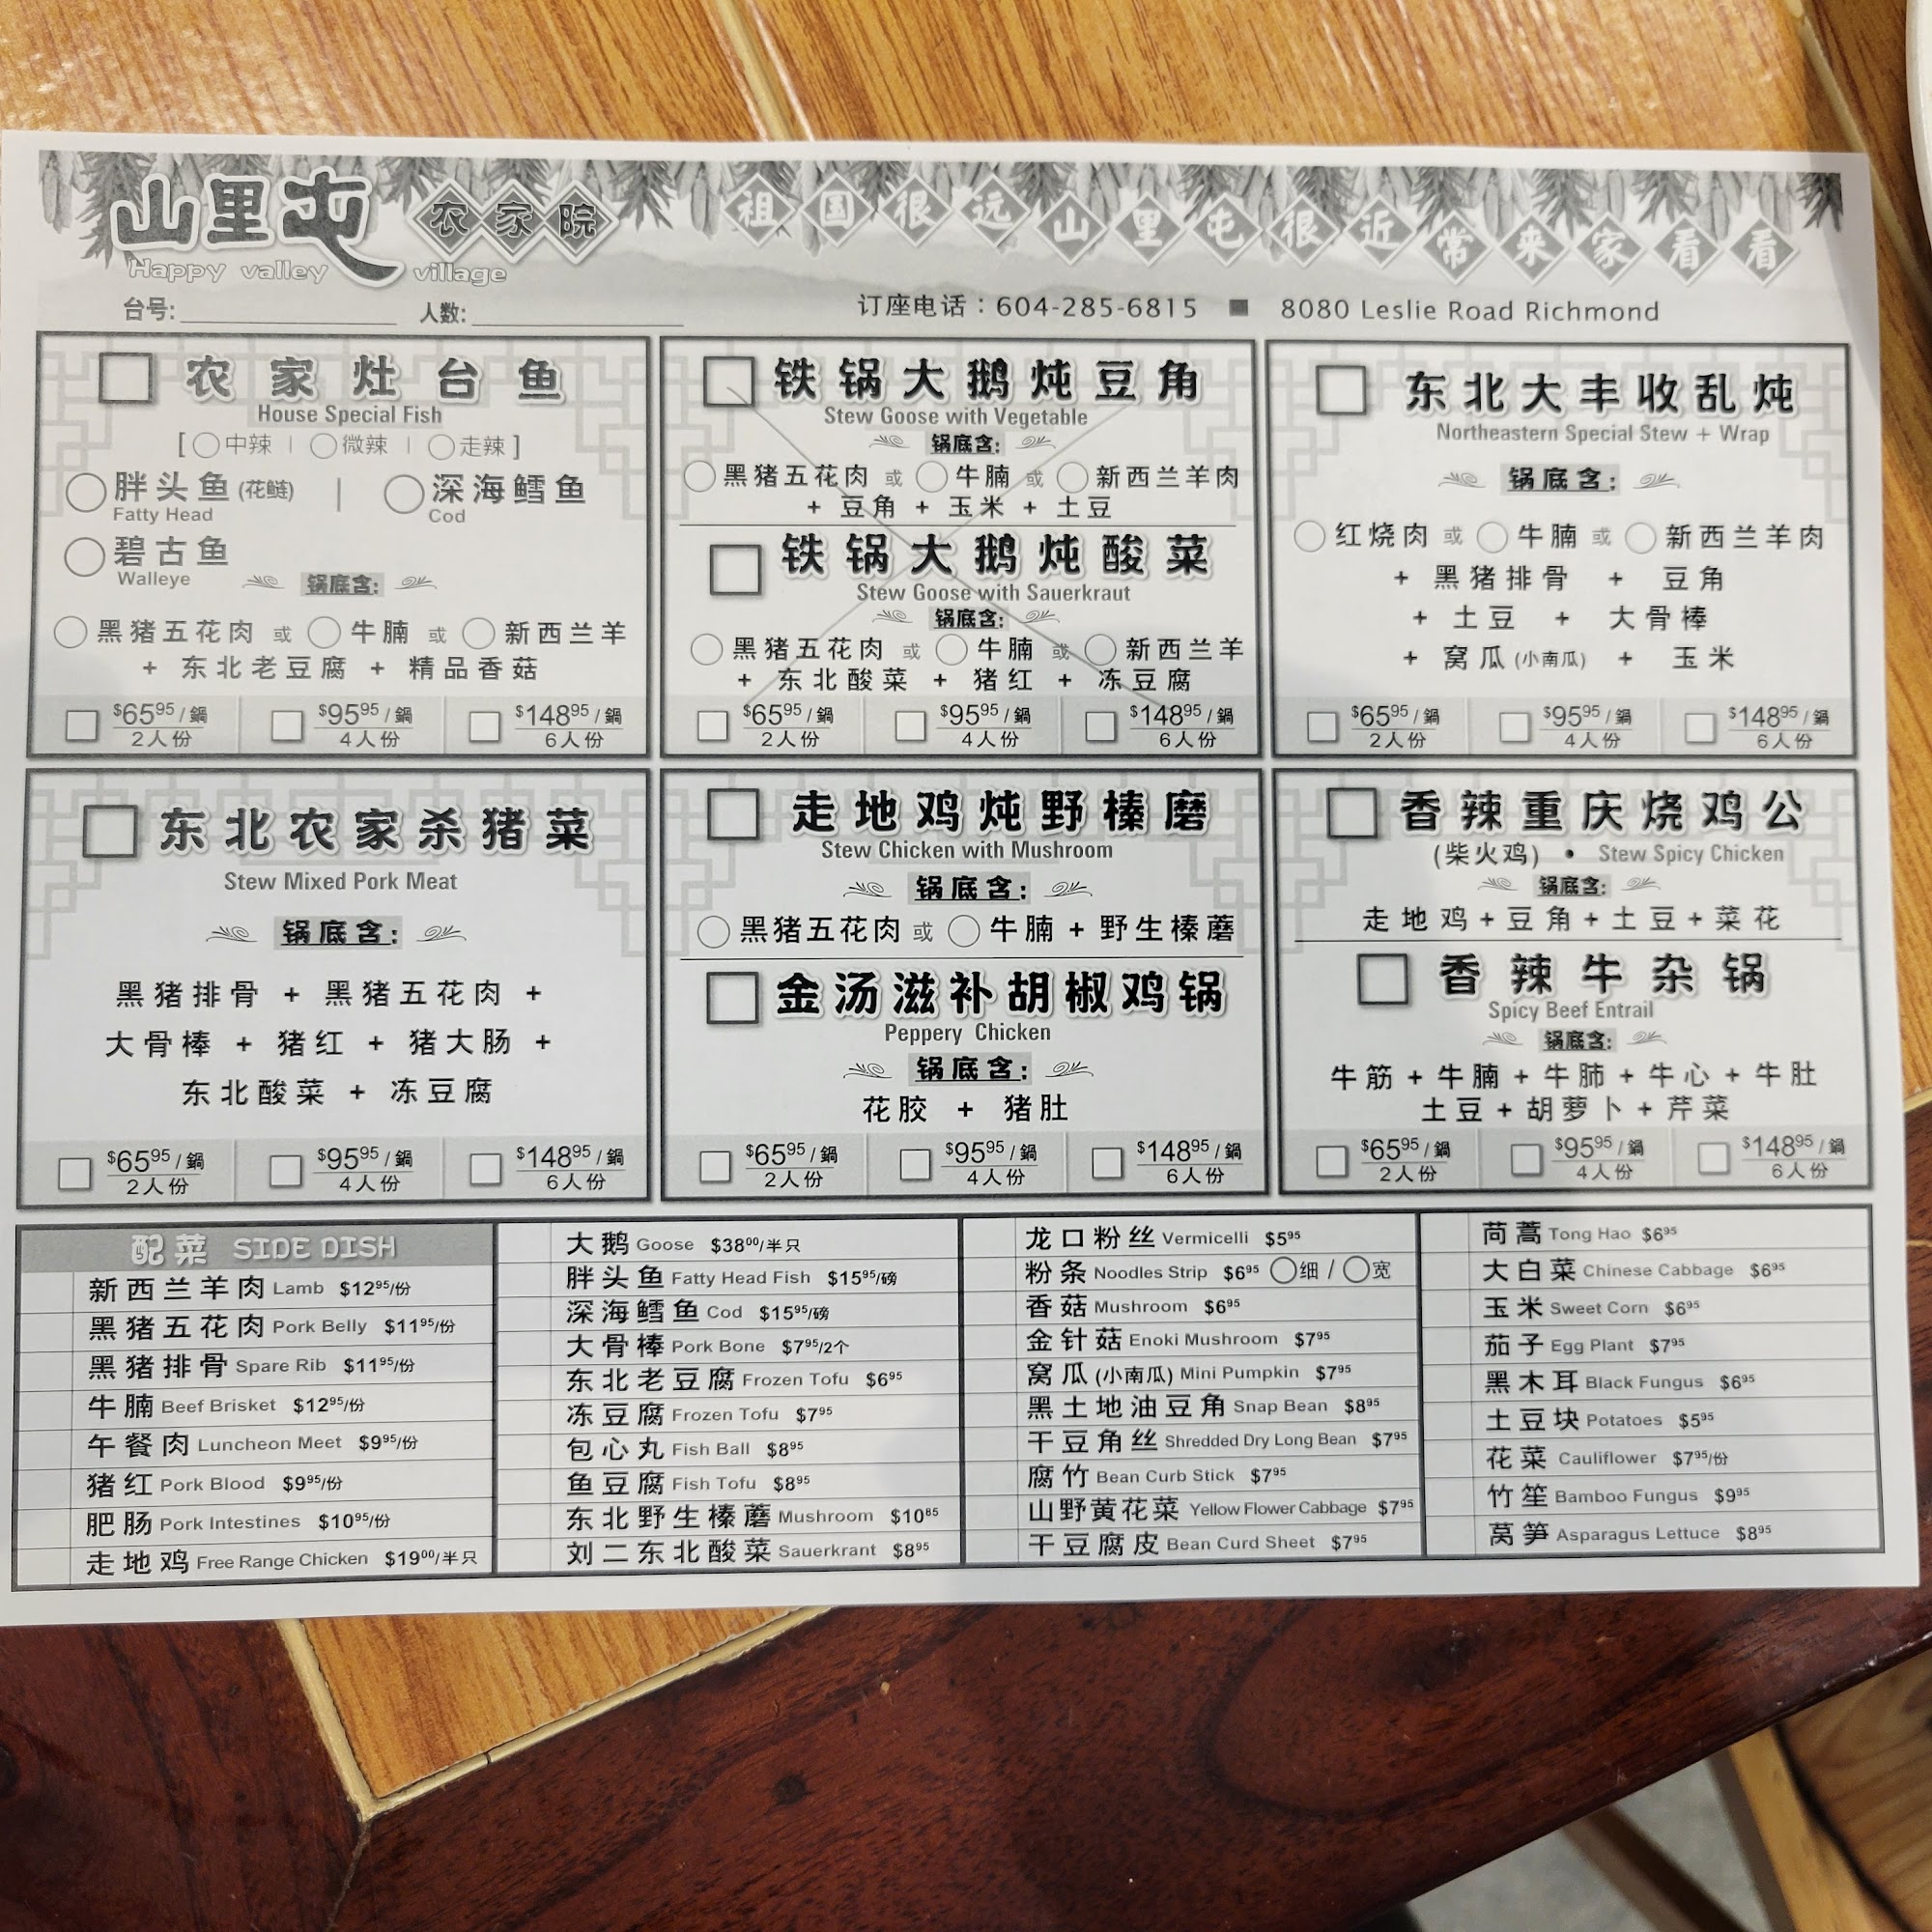 山里屯 农家院
Happy valley village
祖国很远山里屯很近常来家看看
台号: 人数:
订座电话：604-285-6815 ■ 8080 Leslie Road Richmond
农家灶台鱼
House Special Fish
[ 中辣 | 微辣 | 走辣 ]
胖头鱼(花鲢) | 深海鳕鱼
Fatty Head Cod
碧古鱼
Walleye
锅底含:
黑猪五花肉 或 牛腩 或 新西兰羊
+ 东北老豆腐 + 精品香菇
$65.95/鍋 $95.95/鍋 $148.95/鍋
2人份 4人份 6人份
铁锅大鹅炖豆角
Stew Goose with Vegetable
锅底含:
黑猪五花肉 或 牛腩 或 新西兰羊肉
+ 豆角 + 玉米 + 土豆
铁锅大鹅炖酸菜
Stew Goose with Sauerkraut
锅底含:
黑猪五花肉 或 牛腩 或 新西兰羊
+ 东北酸菜 + 猪红 + 冻豆腐
$65.95/鍋 $95.95/鍋 $148.95/鍋
2人份 4人份 6人份
东北大丰收乱炖
Northeastern Special Stew + Wrap
锅底含:
红烧肉 或 牛腩 或 新西兰羊肉
+ 黑猪排骨 + 豆角
+ 土豆 + 大骨棒
+ 窝瓜(小南瓜) + 玉米
$65.95/鍋 $95.95/鍋 $148.95/鍋
2人份 4人份 6人份
东北农家杀猪菜
Stew Mixed Pork Meat
锅底含:
黑猪排骨 + 黑猪五花肉 +
大骨棒 + 猪红 + 猪大肠 +
东北酸菜 + 冻豆腐
$65.95/鍋 $95.95/鍋 $148.95/鍋
2人份 4人份 6人份
走地鸡炖野榛磨
Stew Chicken with Mushroom
锅底含:
黑猪五花肉 或 牛腩 + 野生榛蘑
金汤滋补胡椒鸡锅
Peppery Chicken
锅底含:
花胶 + 猪肚
$65.95/鍋 $95.95/鍋 $148.95/鍋
2人份 4人份 6人份
香辣重庆烧鸡公
(柴火鸡) • Stew Spicy Chicken
锅底含:
走地鸡+豆角+土豆+菜花
香辣牛杂锅
Spicy Beef Entrail
锅底含:
牛筋+牛腩+牛肺+牛心+牛肚
土豆+胡萝卜+芹菜
$65.95/鍋 $95.95/鍋 $148.95/鍋
2人份 4人份 6人份
配菜 SIDE DISH
新西兰羊肉 Lamb $12.95/份
黑猪五花肉 Pork Belly $11.95/份
黑猪排骨 Spare Rib $11.95/份
牛腩 Beef Brisket $12.95/份
午餐肉 Luncheon Meet $9.95/份
猪红 Pork Blood $9.95/份
肥肠 Pork Intestines $10.95/份
走地鸡 Free Range Chicken $19.00/半只
大鹅 Goose $38.00/半只
胖头鱼 Fatty Head Fish $15.95/磅
深海鳕鱼 Cod $15.95/磅
大骨棒 Pork Bone $7.95/2个
东北老豆腐 Frozen Tofu $6.95
冻豆腐 Frozen Tofu $7.95
包心丸 Fish Ball $8.95
鱼豆腐 Fish Tofu $8.95
东北野生榛蘑 Mushroom $10.85
刘二东北酸菜 Sauerkrant $8.95
龙口粉丝 Vermicelli $5.95
粉条 Noodles Strip $6.95 细 / 宽
香菇 Mushroom $6.95
金针菇 Enoki Mushroom $7.95
窝瓜(小南瓜) Mini Pumpkin $7.95
黑土地油豆角 Snap Bean $8.95
干豆角丝 Shredded Dry Long Bean $7.95
腐竹 Bean Curb Stick $7.95
山野黄花菜 Yellow Flower Cabbage $7.95
干豆腐皮 Bean Curd Sheet $7.95
茼蒿 Tong Hao $6.95
大白菜 Chinese Cabbage $6.95
玉米 Sweet Corn $6.95
茄子 Egg Plant $7.95
黑木耳 Black Fungus $6.95
土豆块 Potatoes $5.95
花菜 Cauliflower $7.95/份
竹笙 Bamboo Fungus $9.95
莴笋 Asparagus Lettuce $8.95